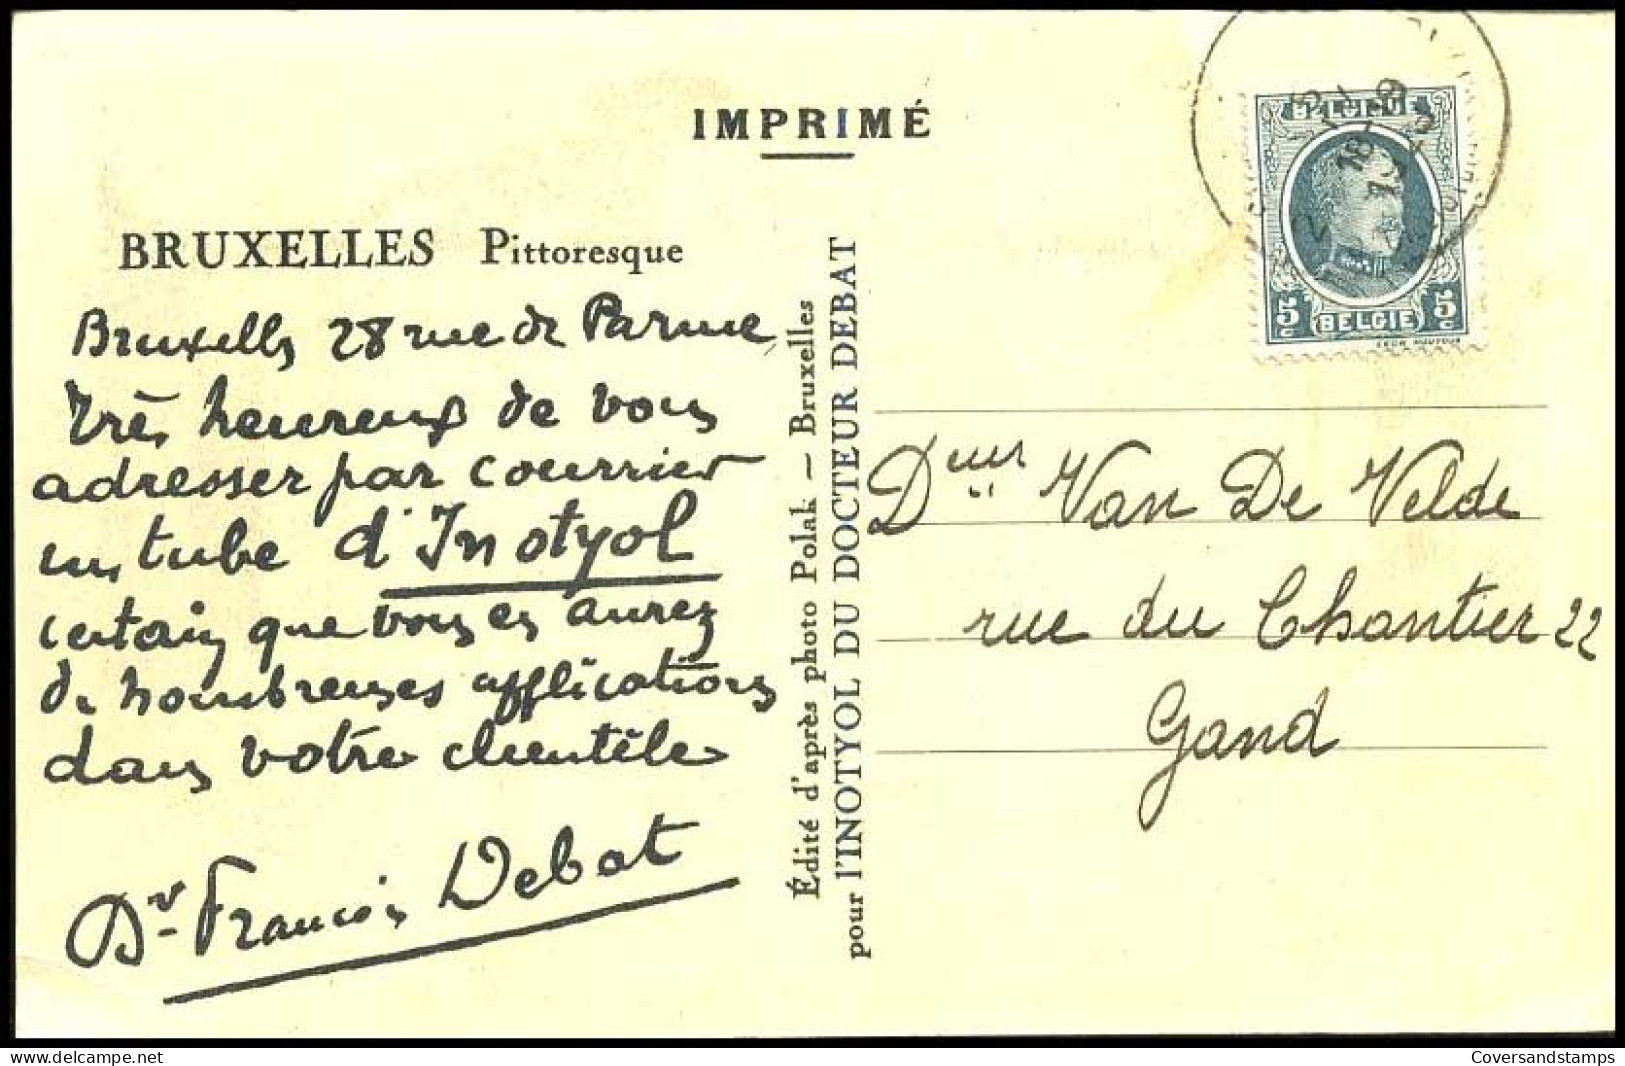 IMPRIMÉ
BRUXELLES Pittoresque
Bruxelles 28 rue de Parme
Très heureux de vous
adresser par courrier
un tube d'Inotyol
certain que vous en aurez
de nombreuses applications
dans votre clientèle
Dr Francis Debat
Édité d'après photo Polak — Bruxelles
pour l'INOTYOL DU DOCTEUR DEBAT
BELGIQUE
5c BELGIE 5c
Dteur Van De Velde
rue du Chantier 22
Gand
Coversandstamps